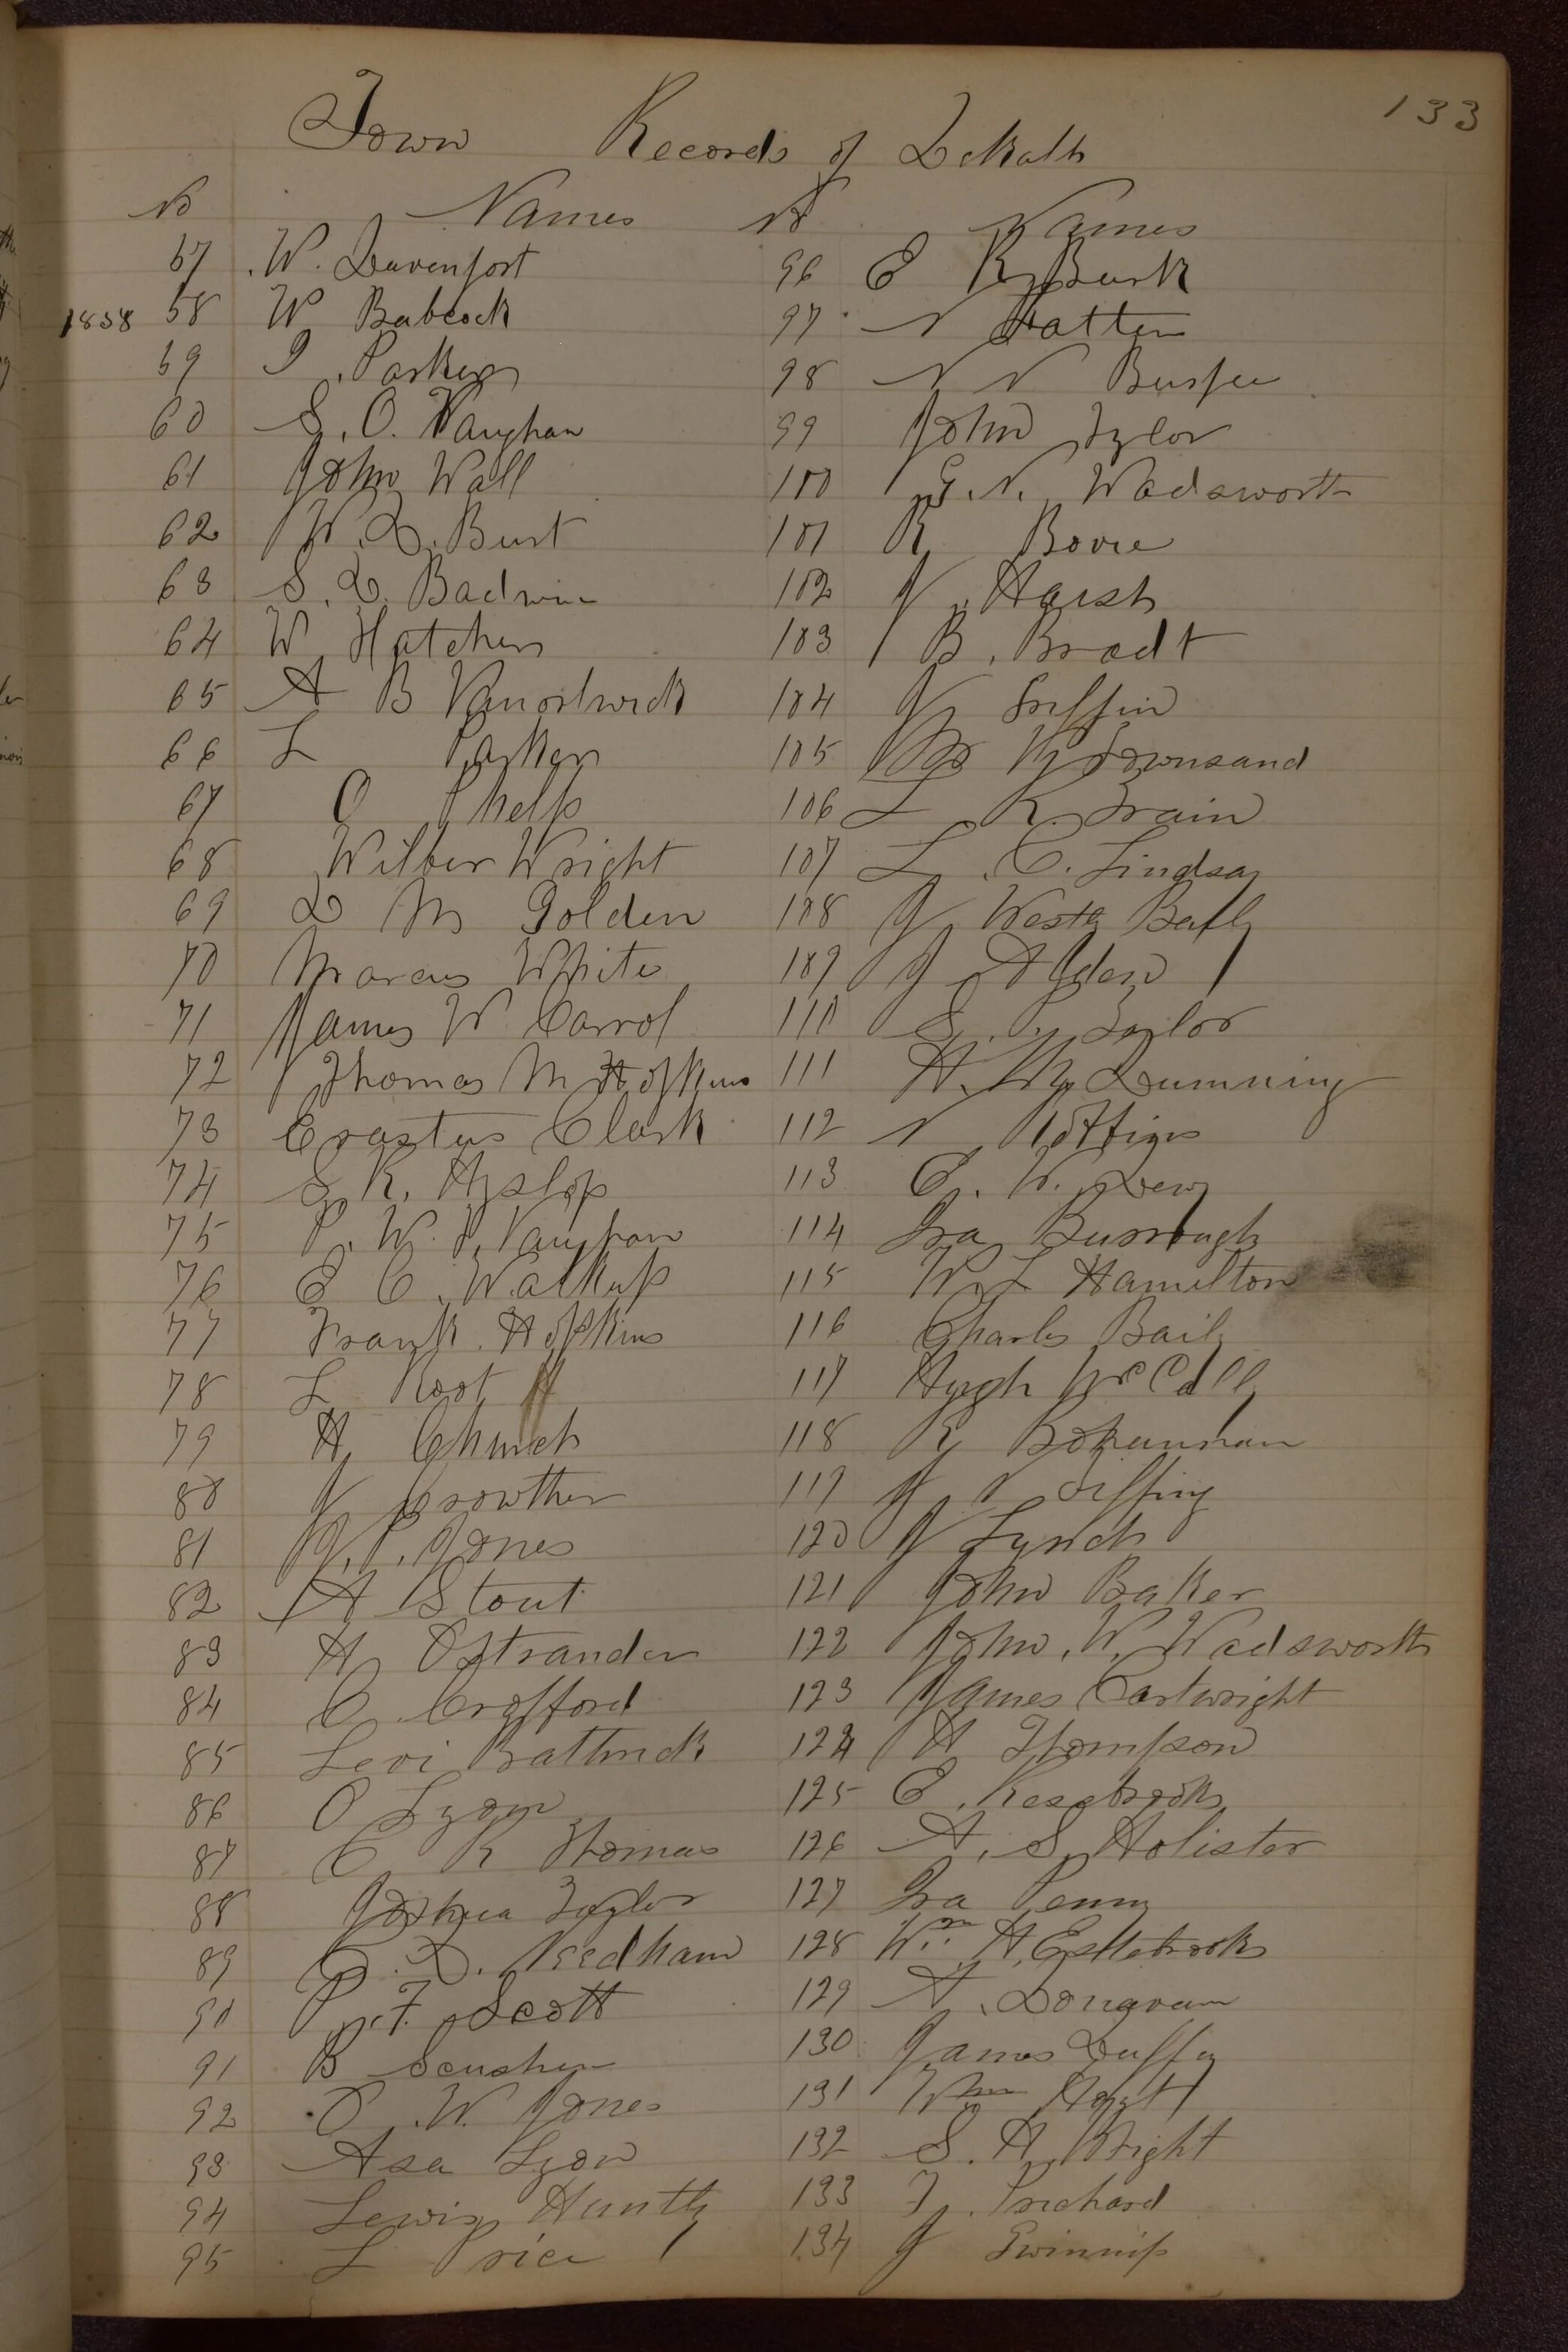 133
Town Records of DeKalb
No Names
57 W. Davenport
1858 58 W Babcock
59 I. Parker
60 S. O. Vaughan
61 John Wall
62 W. D. Burt
63 S. D. Badwin
64 W Hatcher
65 A B Vanostwick
66 L Parker
67 O Phelps
68 Wilber Wright
69 D M Golden
70 Marcus White
71 James W Carrol
72 Thomas M Hopkins
73 Erastus Clark
74 S. K. Hyslop
75 P. W. P. Vaughan
76 E C. Walkup
77 Frank Hopkins
78 L Root
79 H Church
80 J Crowther
81 J. P. Jones
82 A Stout
83 H Ostrander
84 C Crofford
85 Levi
86 O Lyon
87 C R Thomas
88 Joshua Taylor
89 D. Needham
90 P. F. Scott
91 B
92 O. W. Jones
93 Asa Lyon
94 Lewis Huntly
95 L Price
No Names
96 E K Burk
97 N Hatten
98 N N Burpee
99 John Tylor
100 G. N. Wadsworth
101 R Bovie
102 J. Harsh
103 B. Bradt
104 J Griffin
105 Townsand
106 L R. Train
107 L. C. Lindsay
108 J West Baily
109 J Alden
110 S. P. Taylor
111 H. M. Dumming
112 N
113 E. W. Dewy
114 Ira Burrough
115 W L Hamilton
116 Charles Baily
117 Hugh McColl
118 R Bohannan
119 J N
120 J Lynch
121 John Baker
122 John. W. Wadsworth
123 James Cartwright
124 A Thompson
125 E.
126 A. S. Holister
127 Ira Penny
128 Wm. H. Estebrooks
129 A. Dongavan
130 James Duffy
131 Wm Hoyt
132 S. A. Wright
133 F. Prichard
134 J